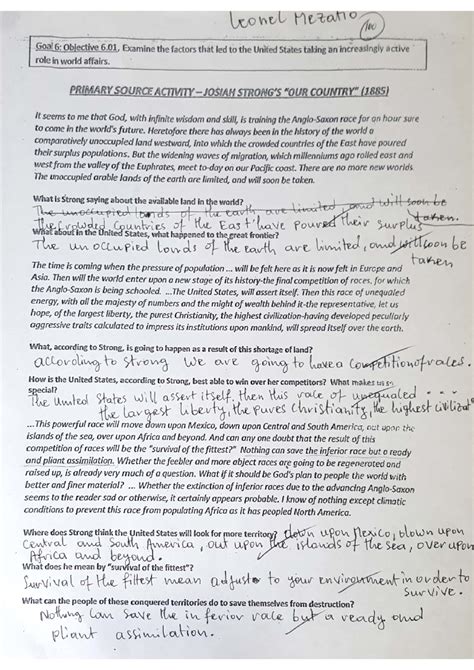 Leonel Mezatio
100
Goal 6: Objective 6.01. Examine the factors that led to the United States taking an increasingly active
role in world affairs.
PRIMARY SOURCE ACTIVITY – JOSIAH STRONG'S "OUR COUNTRY" (1885)
It seems to me that God, with infinite wisdom and skill, is training the Anglo-Saxon race for an hour sure
to come in the world's future. Heretofore there has always been in the history of the world a
comparatively unoccupied land westward, into which the crowded countries of the East have poured
their surplus populations. But the widening waves of migration, which millenniums ago rolled east and
west from the valley of the Euphrates, meet to-day on our Pacific coast. There are no more new worlds.
The unoccupied arable lands of the earth are limited, and will soon be taken.
What is Strong saying about the available land in the world?
The unoccupied lands of the earth are limited, and will soon be
taken.
The crowded Countries of the East have poured their surplus
What about in the United States, what happened to the great frontier?
The unoccupied lands of the earth are limited, and will soon be
taken
The time is coming when the pressure of population ... will be felt here as it is now felt in Europe and
Asia. Then will the world enter upon a new stage of its history-the final competition of races, for which
the Anglo-Saxon is being schooled. ...The United States, will assert itself. Then this race of unequaled
energy, with all the majesty of numbers and the might of wealth behind it-the representative, let us
hope, of the largest liberty, the purest Christianity, the highest civilization-having developed peculiarly
aggressive traits calculated to impress its institutions upon mankind, will spread itself over the earth.
What, according to Strong, is going to happen as a result of this shortage of land?
according to Strong we are going to have a Competition of races.
How is the United States, according to Strong, best able to win over her competitors? What makes us so
special?
The United States will assert itself, then this race of unequaled ...
the largest liberty, the pures Christianity, the highest civilizat
...This powerful race will move down upon Mexico, down upon Central and South America, out upon the
islands of the sea, over upon Africa and beyond. And can any one doubt that the result of this
competition of races will be the "survival of the fittest?" Nothing can save the inferior race but a ready
and pliant assimilation. Whether the feebler and more abject races are going to be regenerated and
raised up, is already very much of a question. What if it should be God's plan to people the world with
better and finer material? ... Whether the extinction of inferior races due to the advancing Anglo-Saxon
seems to the reader sad or otherwise, it certainly appears probable. I know of nothing except climatic
conditions to prevent this race from populating Africa as it has peopled North America.
Where does Strong think the United States will look for more territory? down upon Mexico, down upon
Central and South America, out upon the islands of the sea, over upon
Africa and beyond.
What does he mean by "survival of the fittest"?
Survival of the fittest mean adjust to your environment in order to
survive.
What can the people of these conquered territories do to save themselves from destruction?
Nothing can save the inferior race but a ready and
pliant assimilation.